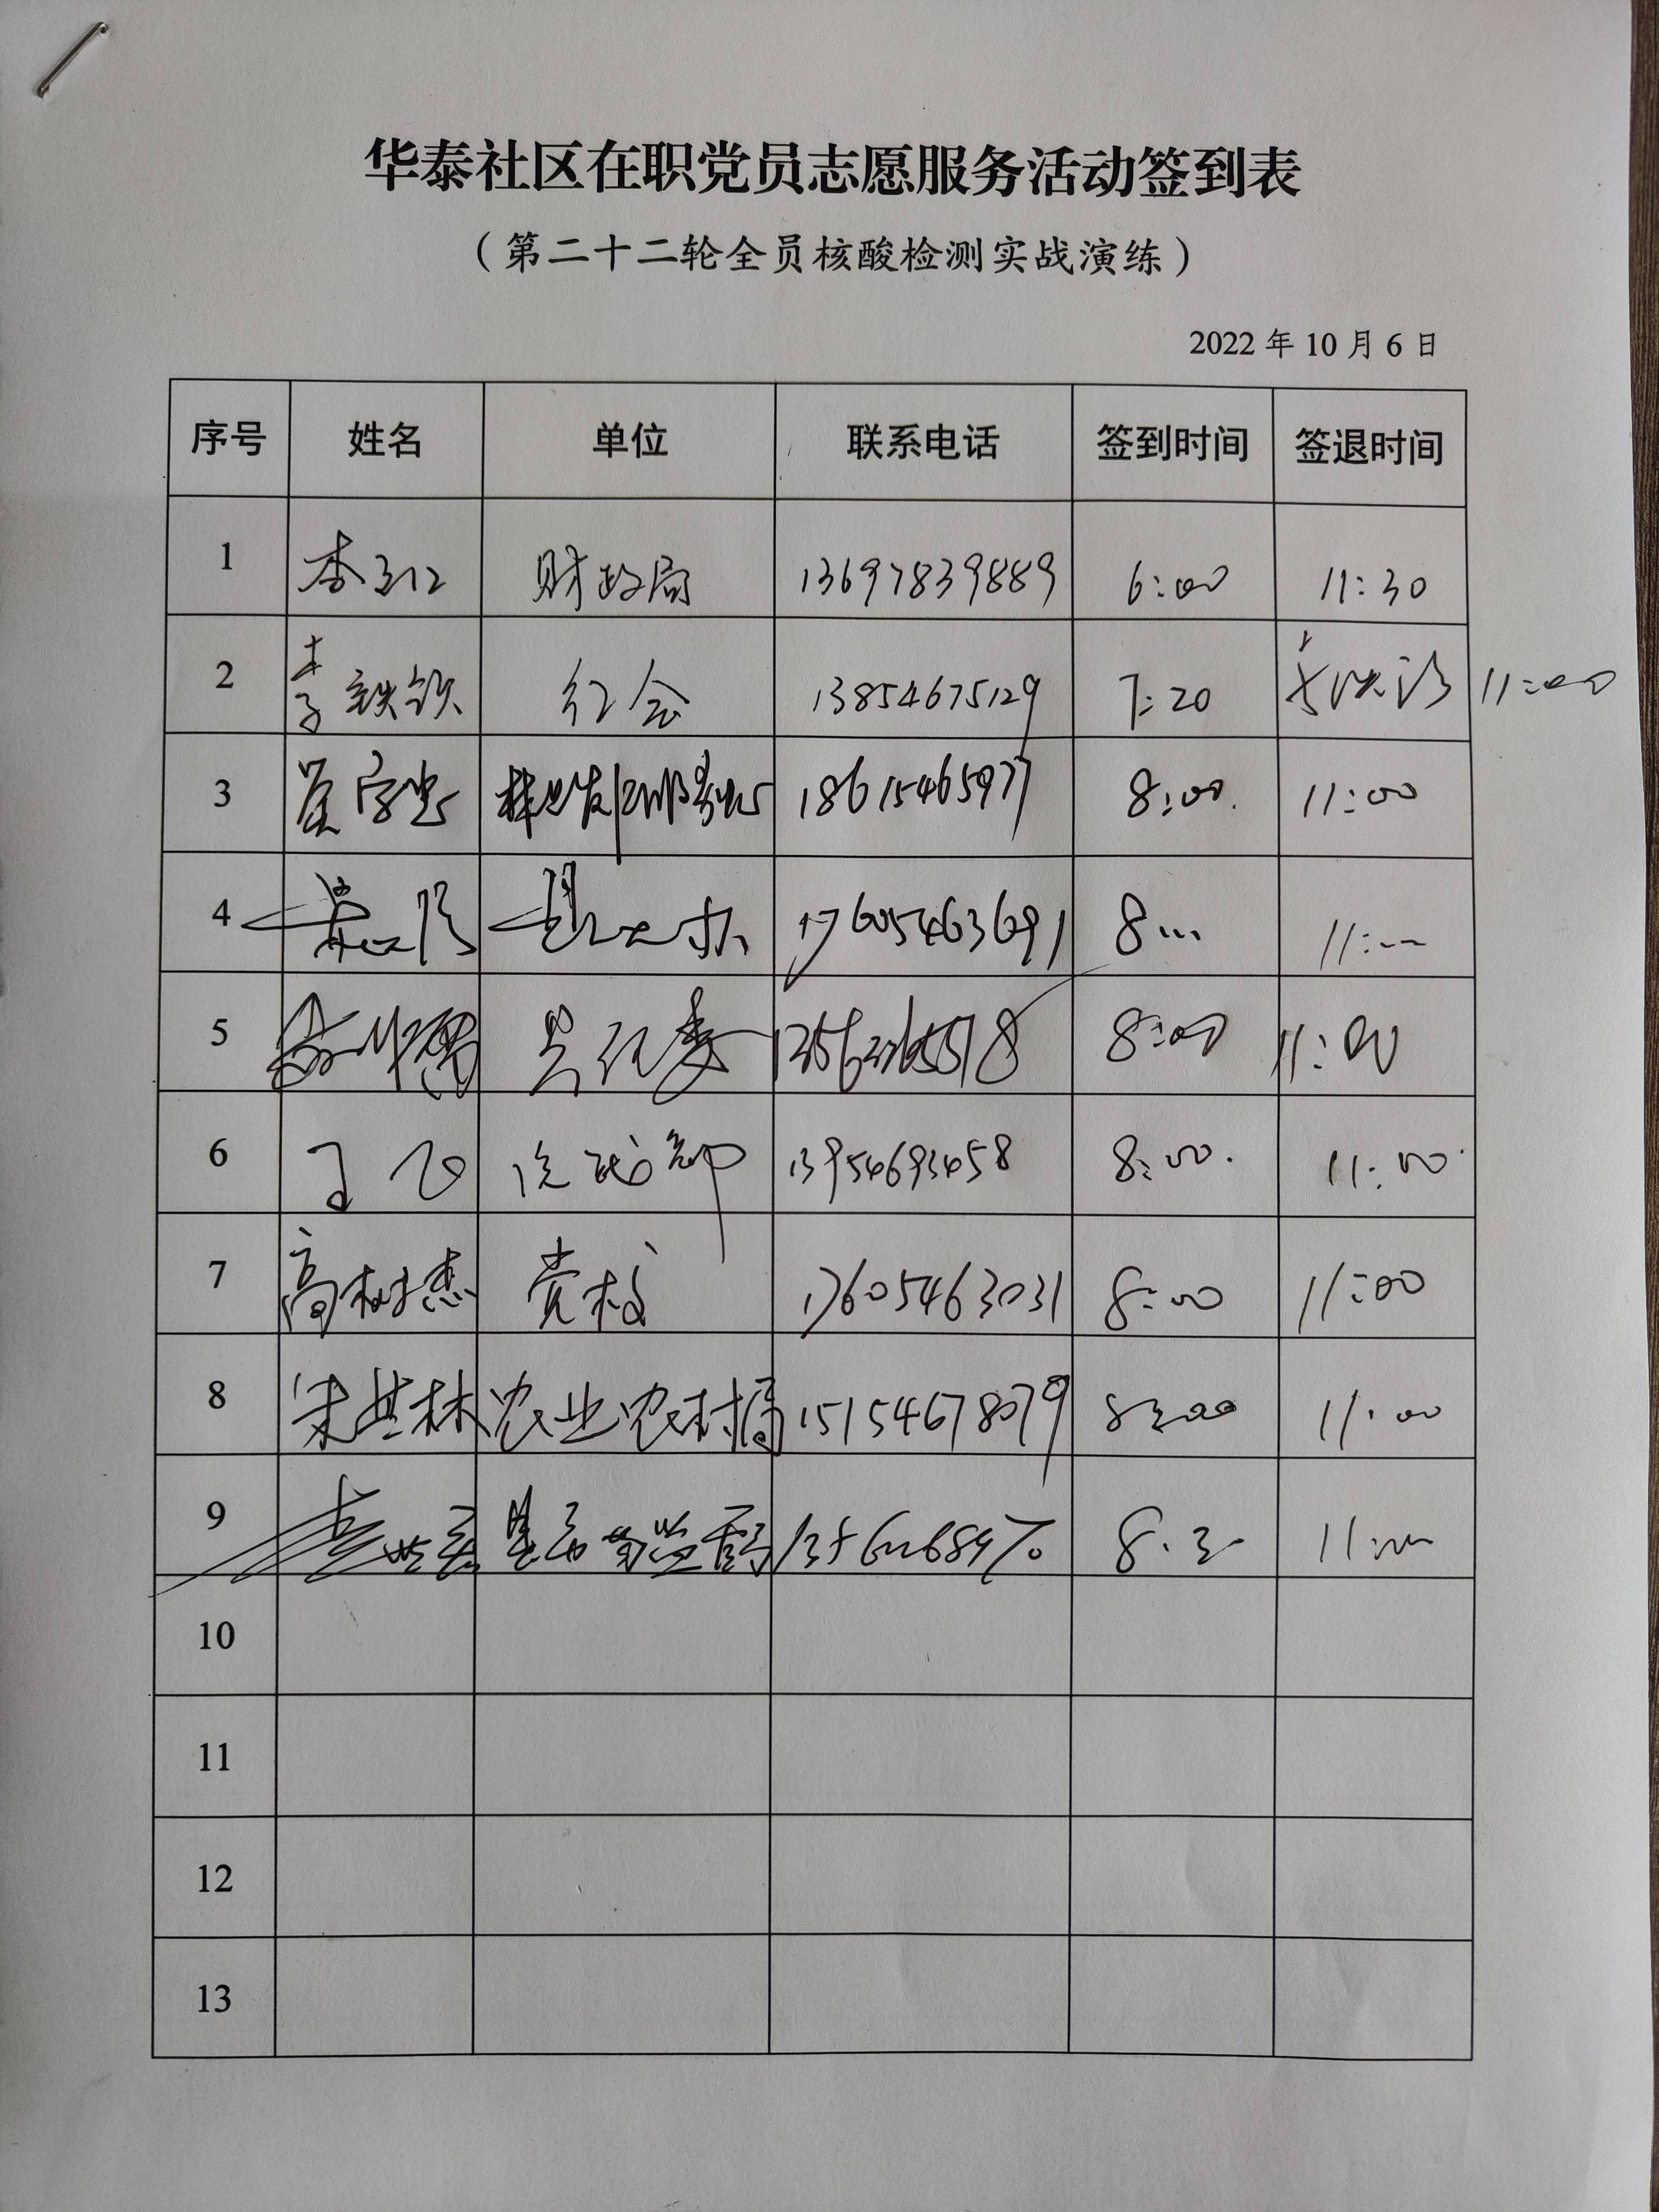 华泰社区在职党员志愿服务活动签到表
（第二十二轮全员核酸检测实战演练）
2022 年 10 月 6 日
序号 姓名 单位 联系电话 签到时间 签退时间
1 财政局 13697839889 6:00 11:30
2 李铁钦 红会 13854675129 7:20 11:00
3 18615465977 8:00 11:00
4 17605463691 8 11
5 县纪委 8:00 11:00
6 统战部 13954693458 8:00 11:00
7 高树杰 党校 17605463031 8:00 11:00
8 宋其林 农业农村局 15154678079 8:00 11:00
9 11:00
10
11
12
13